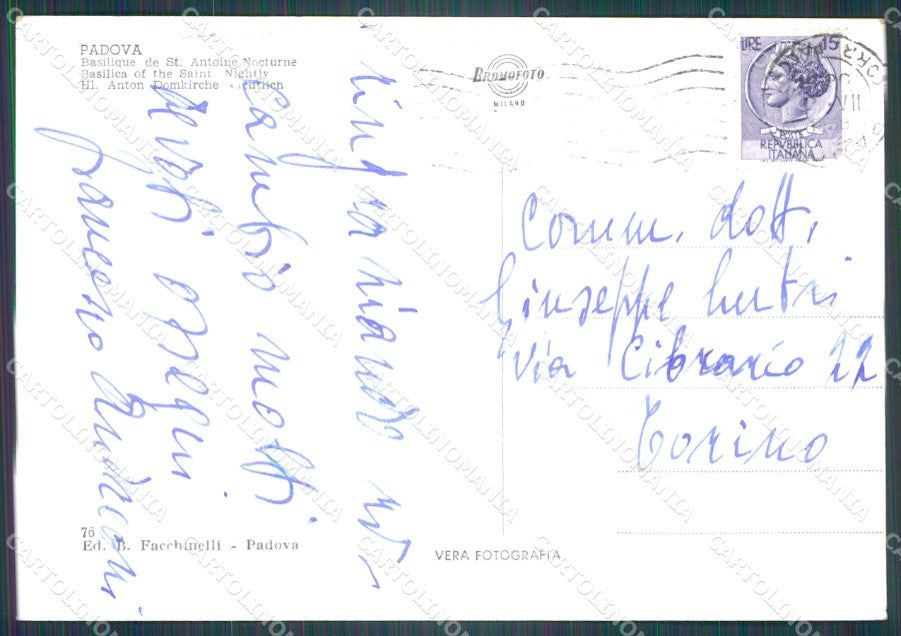 PADOVA
Basilique de St. Antoine Nocturne
Basilica of the Saint Nightly
Hl. Anton Domkirche
BROMOFOTO
MILANO
LIRE 15
POSTE
REPVBBLICA
ITALIANA
ringraziando
cambio molti
auguri
francesco
Comm. dott.
Giuseppe
Via Cibrario 22
Torino
76
Ed. B. Facchinelli - Padova
VERA FOTOGRAFIA
CARTOLINOMANIA